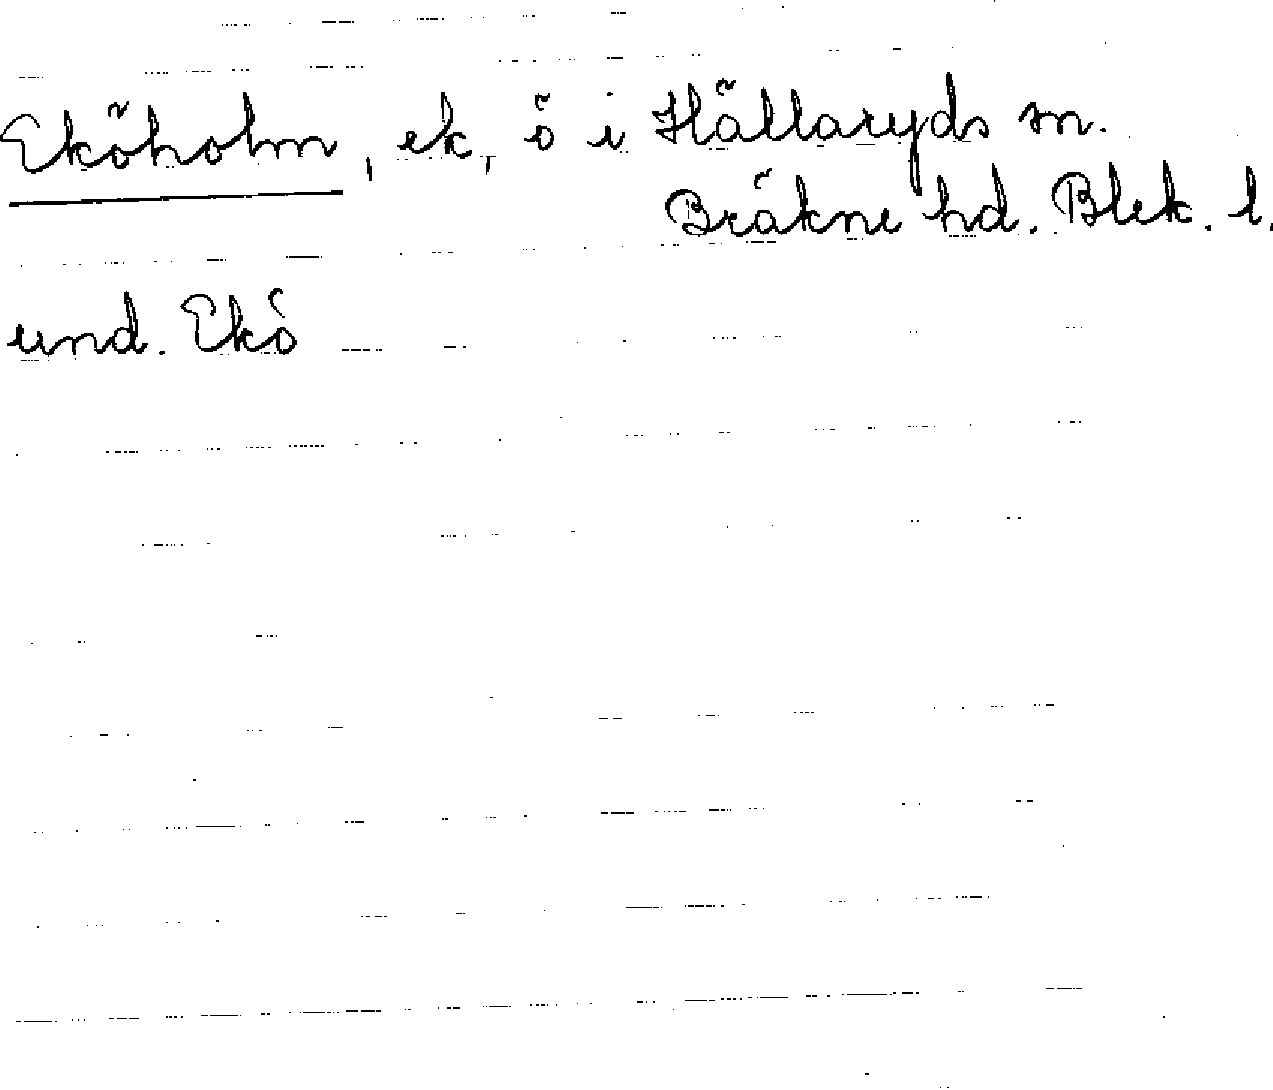 Eköholm, ek, ö i Hällaryds sn.
Bräkne hd. Blek. l.
und. Ekö